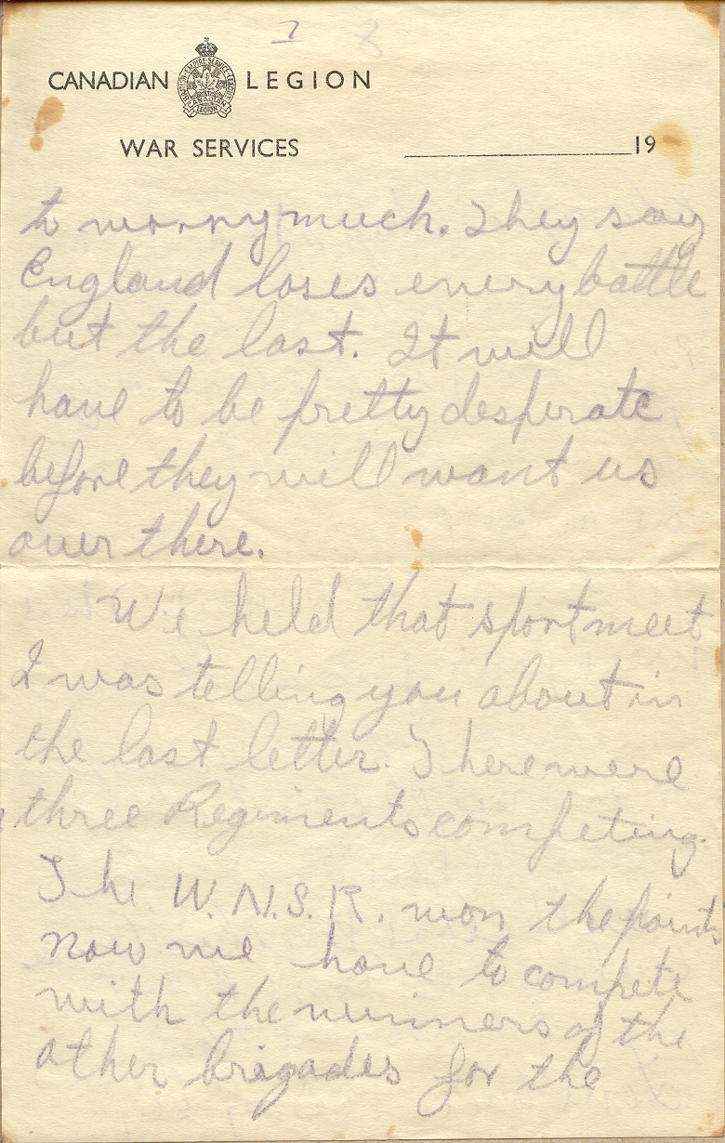 2 3
CANADIAN LEGION
CANADIAN LEGION
WAR SERVICES 19
to worry much. They say
England loses every battle
but the last. It will
have to be pretty desperate
before they will want us
over there.
We held that sport meet
I was telling you about in
the last letter. There were
three Regiments competing.
The W.N.S.R. won the points
Now we have to compete
with the winners of the
other brigades for the